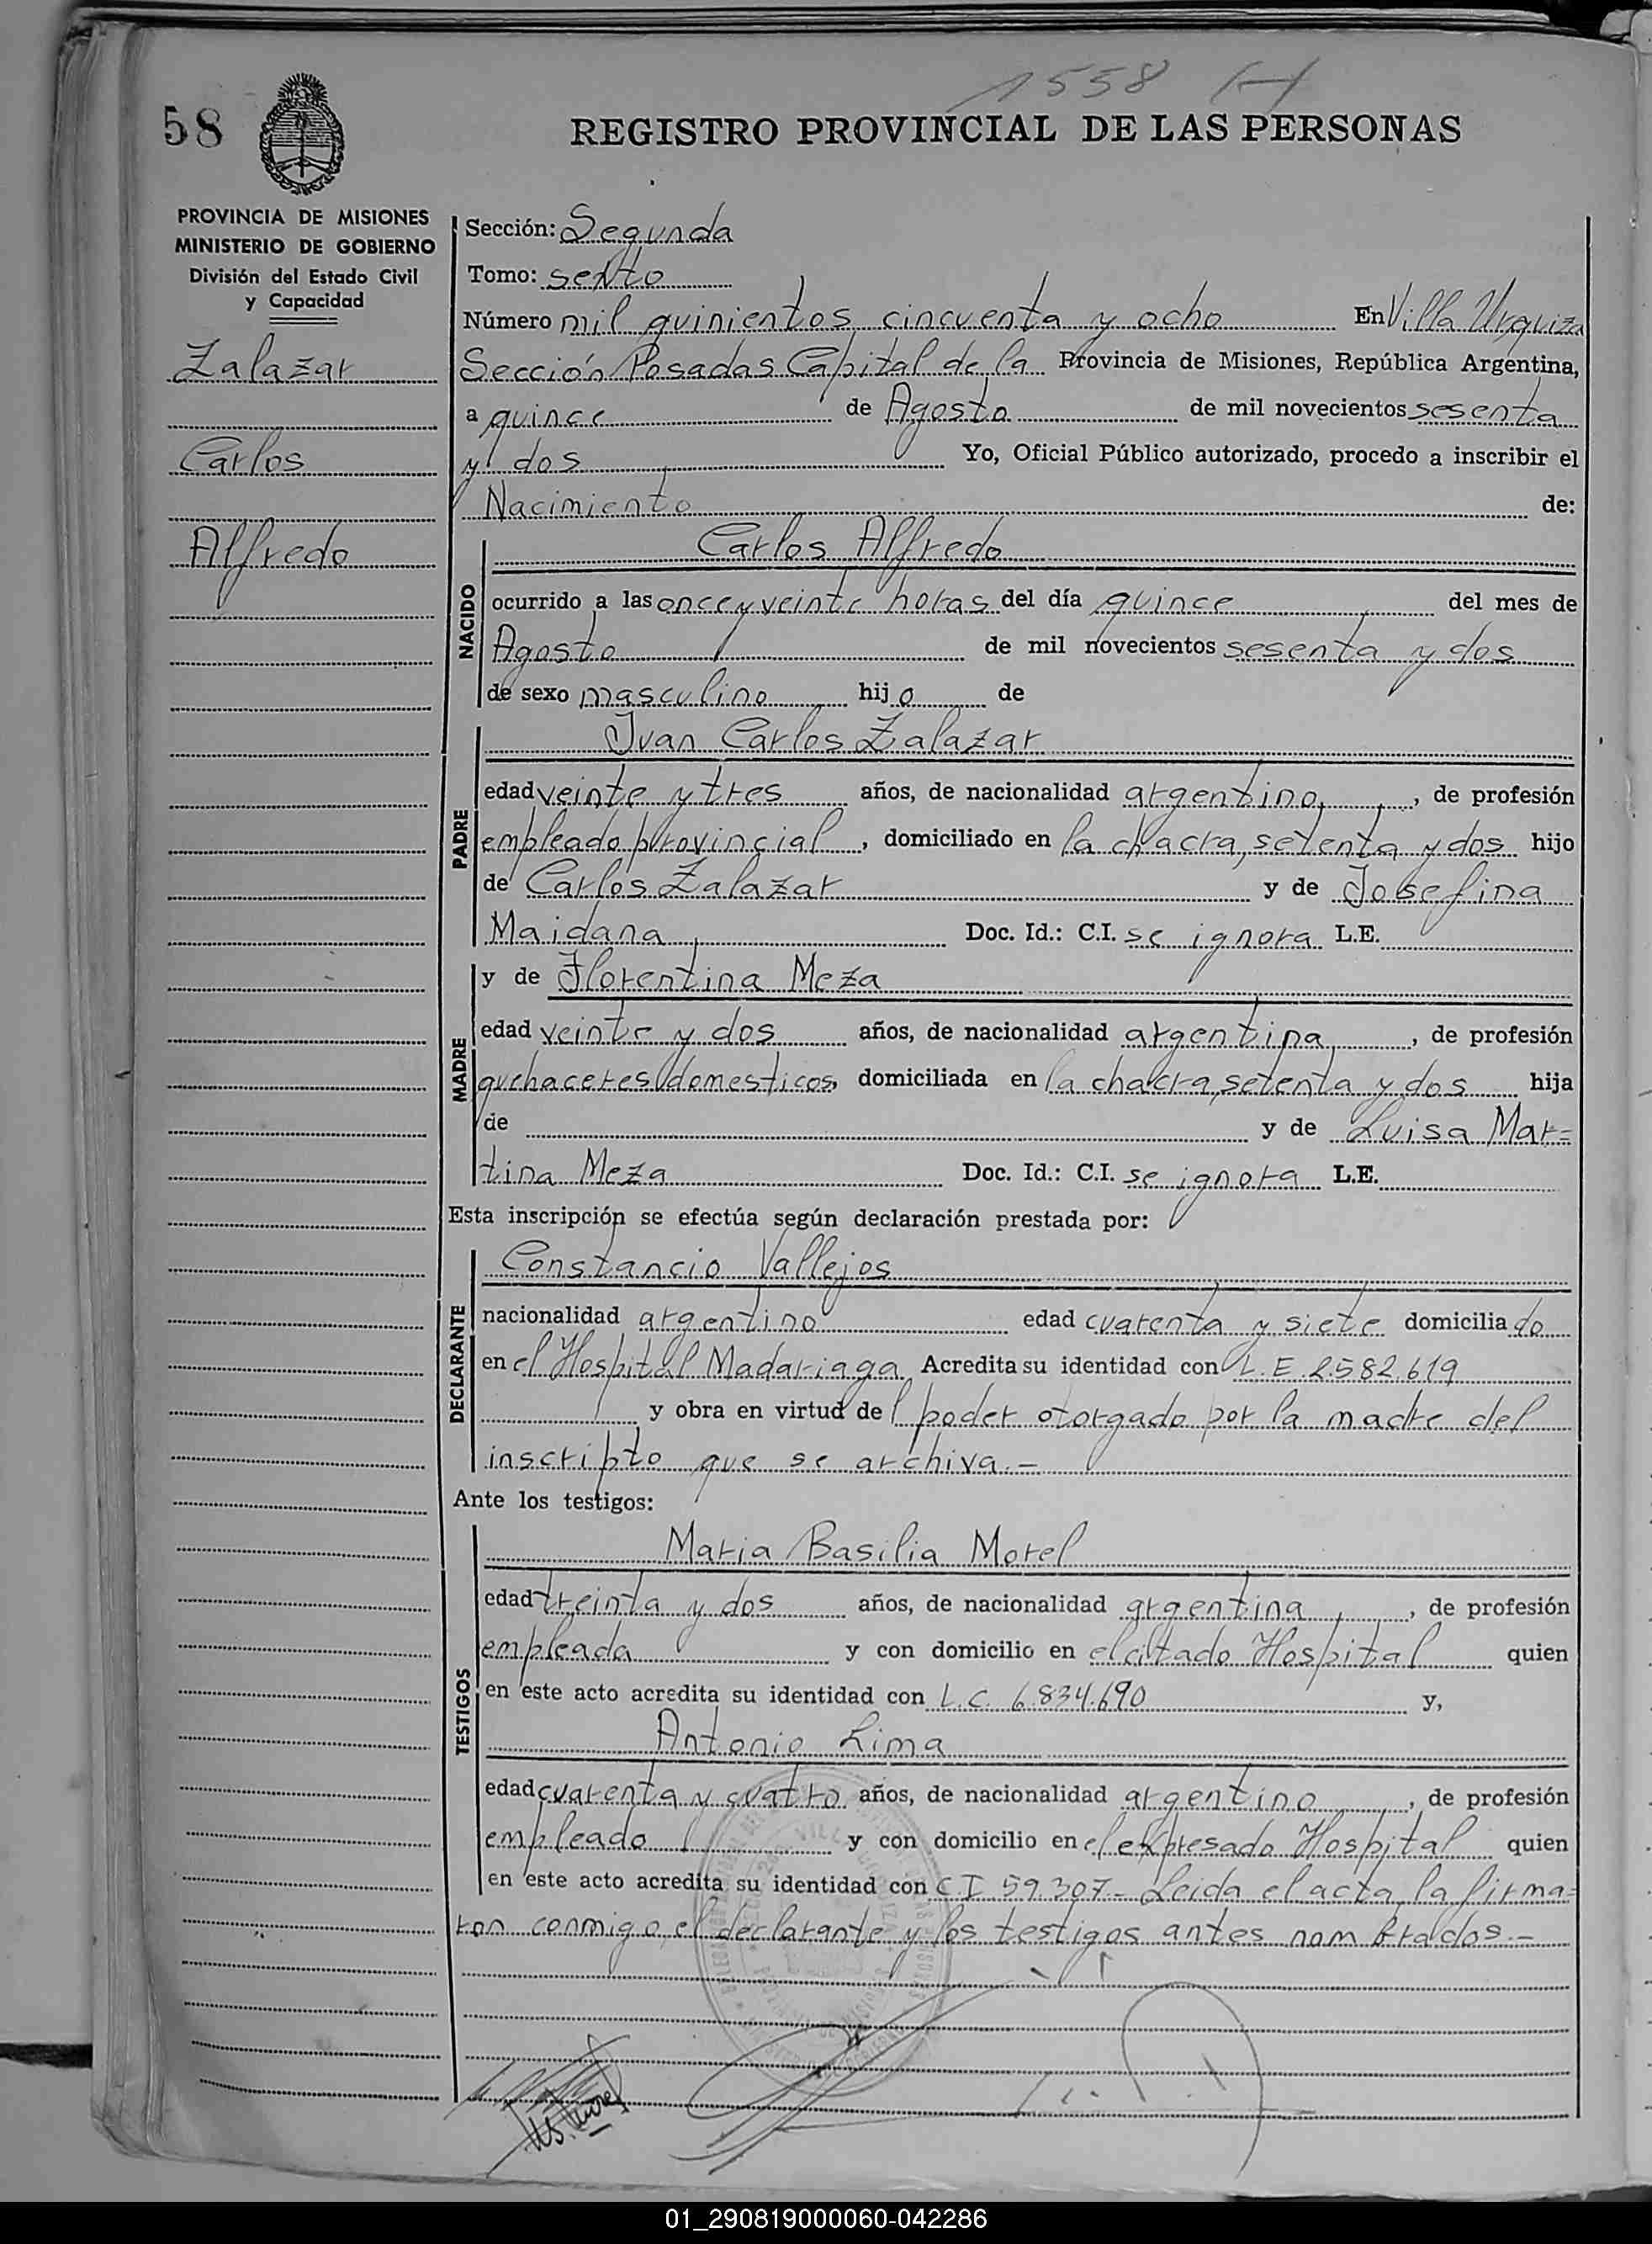 1558 H
58
REGISTRO PROVINCIAL DE LAS PERSONAS
PROVINCIA DE MISIONES
MINISTERIO DE GOBIERNO
División del Estado Civil
y Capacidad
Zalazar
Carlos
Alfredo
Sección: Segunda
Tomo: sexto
Número mil quinientos cincuenta y ocho En Villa Urquiza
Sección Posadas Capital de la Provincia de Misiones, República Argentina,
a quince de Agosto de mil novecientos sesenta
y dos Yo, Oficial Público autorizado, procedo a inscribir el
Nacimiento de:
NACIDO
Carlos Alfredo
ocurrido a las once y veinte horas del día quince del mes de
Agosto de mil novecientos sesenta y dos
de sexo masculino hijo de
PADRE
Juan Carlos Zalazar
edad veinte y tres años, de nacionalidad argentino, de profesión
empleado provincial, domiciliado en la chacra setenta y dos hijo
de Carlos Zalazar y de Josefina
Maidana Doc. Id.: C.I. se ignora L.E.
MADRE
y de Florentina Meza
edad veinte y dos años, de nacionalidad argentina, de profesión
quehaceres domesticos, domiciliada en la chacra setenta y dos hija
de y de Luisa Mar=
tina Meza Doc. Id.: C.I. se ignora L.E.
Esta inscripción se efectúa según declaración prestada por:
DECLARANTE
Constancio Vallejos
nacionalidad argentino edad cuarenta y siete domiciliado
en el Hospital Madariaga Acredita su identidad con L.E. 2.582.619
y obra en virtud del poder otorgado por la madre del
inscripto que se archiva.-
Ante los testigos:
TESTIGOS
Maria Basilia Morel
edad treinta y dos años, de nacionalidad argentina, de profesión
empleada y con domicilio en el citado Hospital quien
en este acto acredita su identidad con L.C. 6.834.690 y,
Antonio Lima
edad cuarenta y cuatro años, de nacionalidad argentino, de profesión
empleado y con domicilio en el expresado Hospital quien
en este acto acredita su identidad con C I 59.307- Leida el acta, la firma=
ron conmigo, el declarante y los testigos antes nombrados.-
01_290819000060-042286